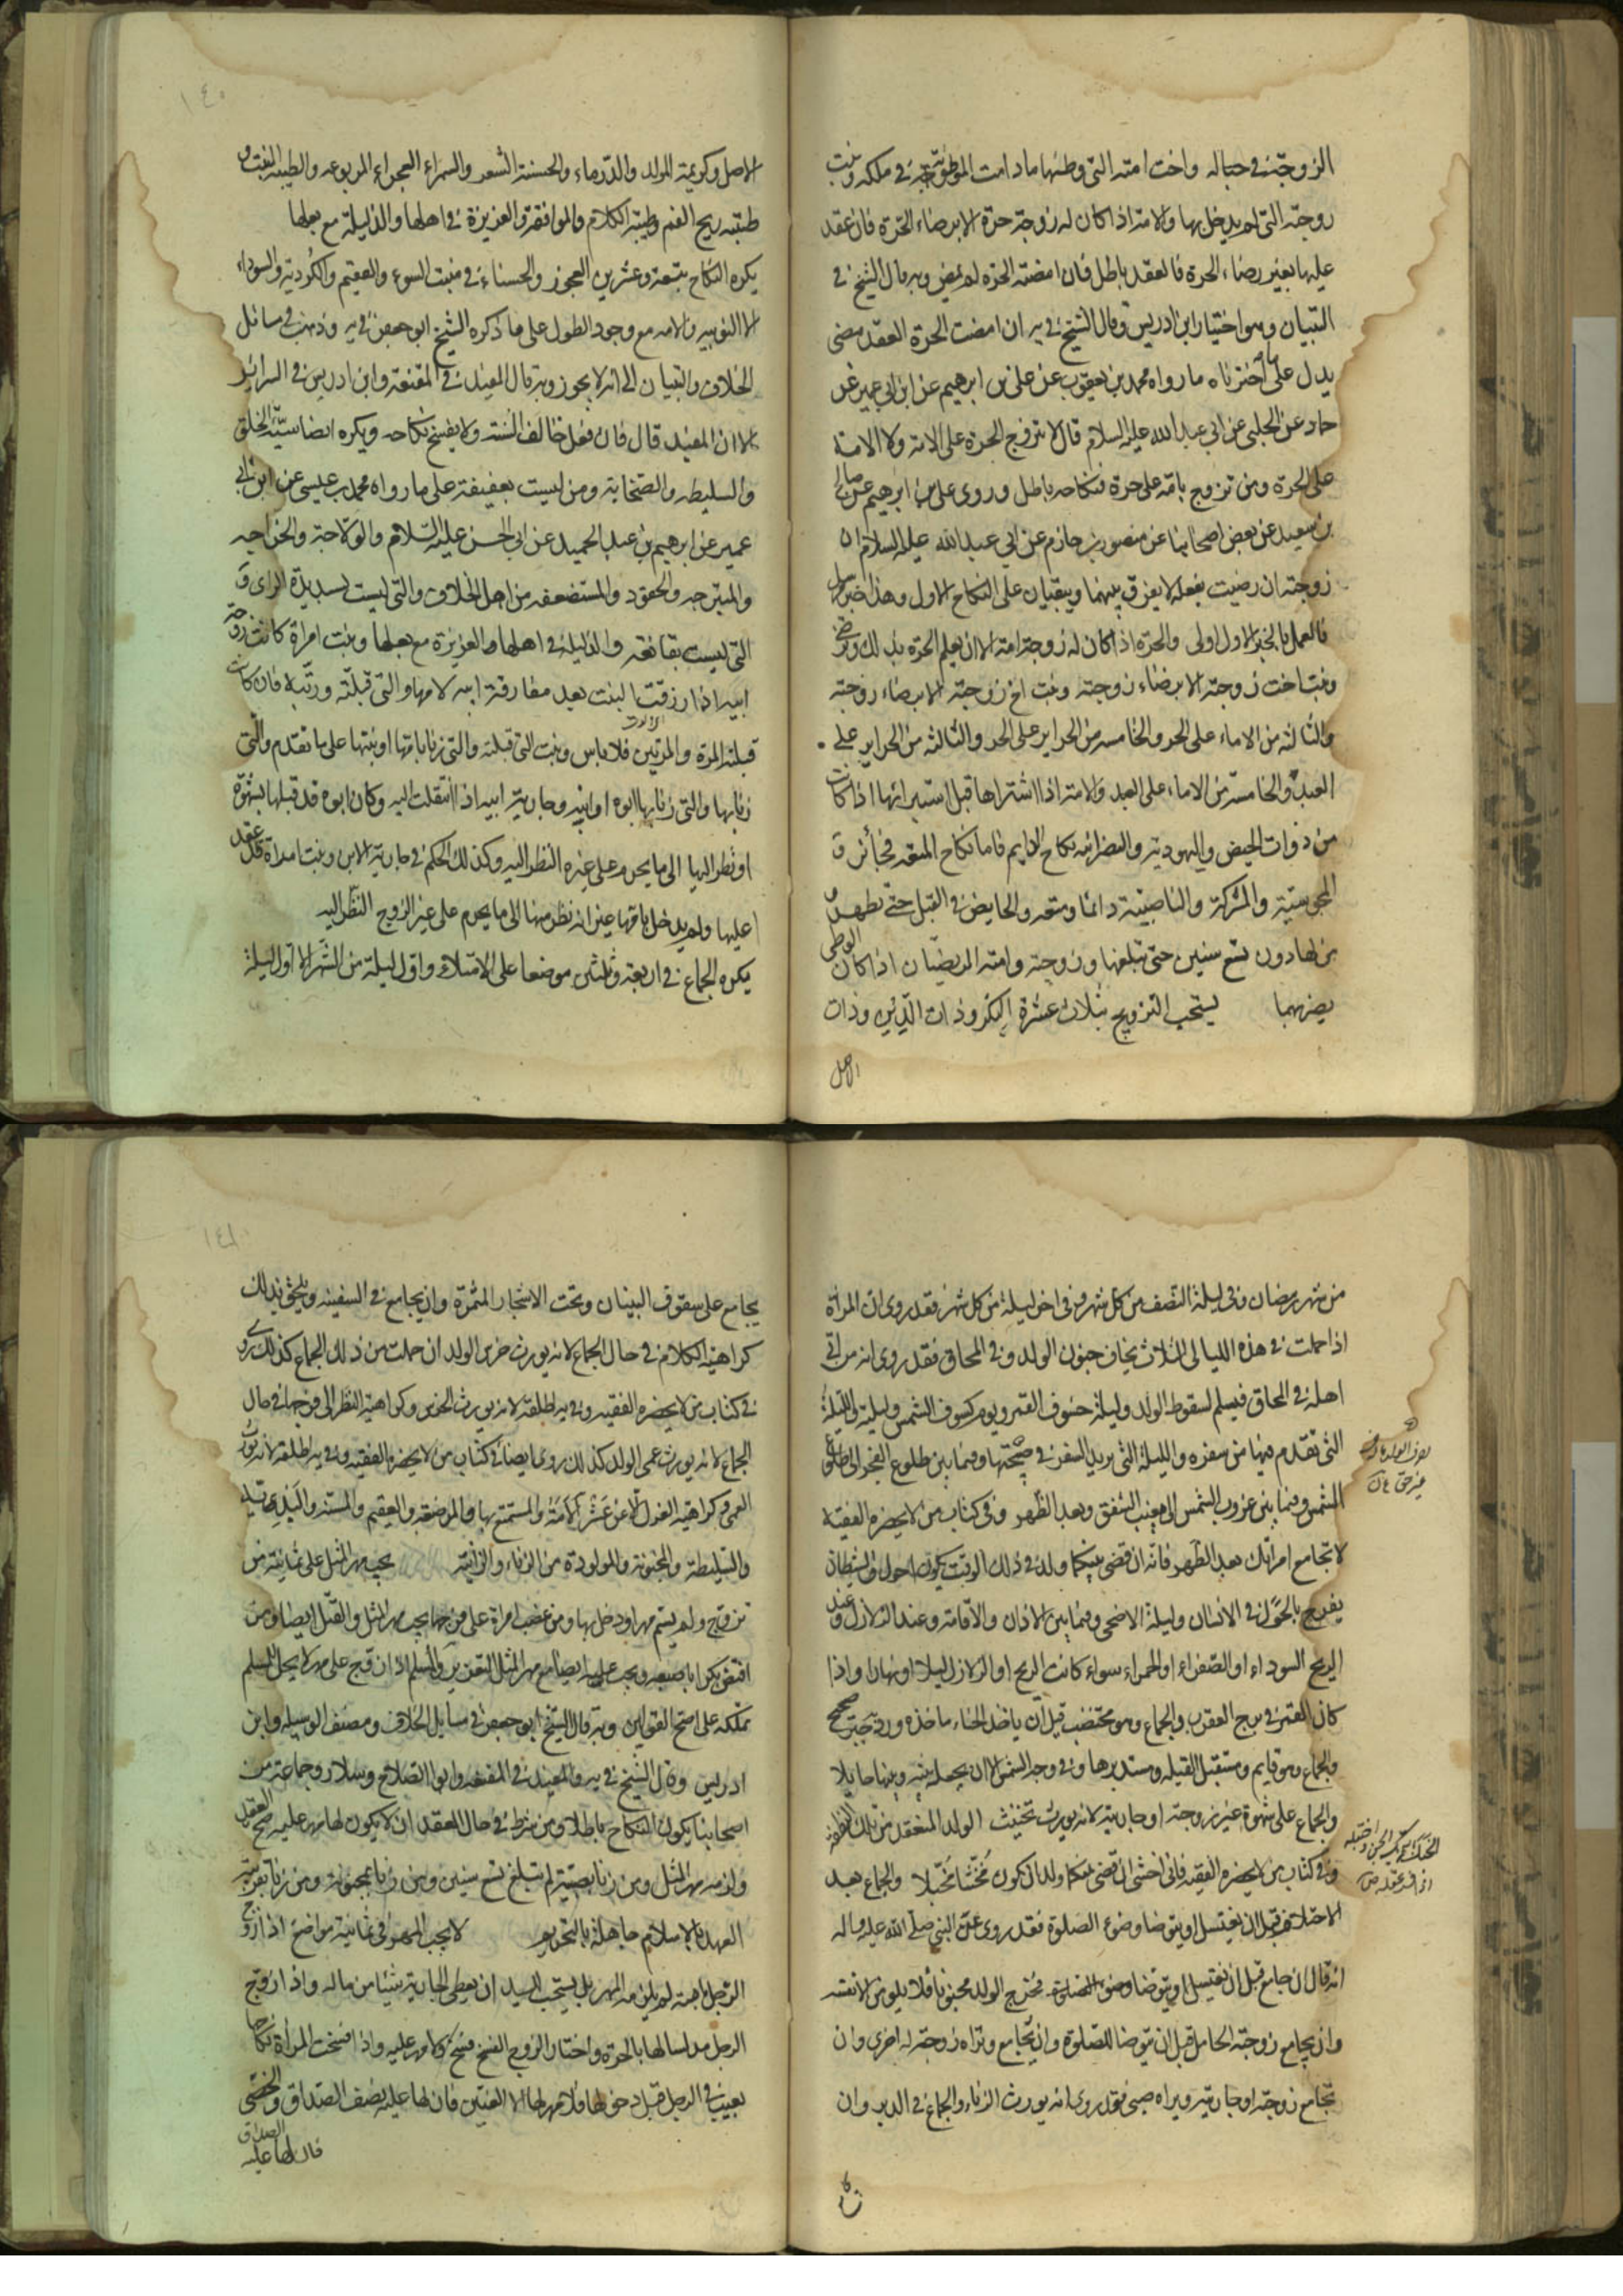 الزوجة في حباله واخت امته التي وطئها ما دامت الموطوئة في ملكه وبنت
زوجته التي لم يدخل بها والامة اذا كان له زوجة حرة الا برضاء الحرة فان عقد
عليها بغير رضاء الحرة فالعقد باطل فان امضته الحرة لم يمض وبه قال الشيخ في
التبيان وهو اختيار ابن ادريس وقال الشيخ في يه ان امضت الحرة العقد مضى
يدل على ما اخترناه ما رواه محمد بن يعقوب عن علي بن ابرهيم عن ابن ابي عمير عن
حماد عن الحلبي عن ابي عبد الله عليه السلام قال لا تزوج الحرة على الامة ولا الامة
على الحرة ومن تزوج بامة على حرة فنكاحه باطل وروى علي بن ابرهيم عن صالح
بن سعيد عن بعض اصحابنا عن منصور بن حازم عن ابي عبد الله عليه السلام ان
زوجته ان رضيت بفعله لا يفرق بينهما ويبقيان على النكاح الاول وهذا خبر مرسل
فالعمل بالخبر الاول اولى والحرة اذا كان له زوجة امة الا ان يعلم الحرة بذلك وترضى
وبنت اخت زوجته الا برضاء زوجته وبنت اخ زوجته الا برضاء زوجته
والثالثة من الاماء على الحر والخامسة من الحراير على الحر والثالثة من الحراير على
العبد والخامسة من الاماء على العبد والامة اذا اشتراها قبل استبرائها اذا كانت
من ذوات الحيض واليهودية والنصرانية نكاح الدايم فاما نكاح المتعة فجائز و
المجوسية والمشركة والناصبية دائما ومتعة والحايض في القبل حتى تطهر و
من لها دون تسع سنين حتى تبلغها وزوجته وامته المريضتان اذا كان الوطي
يضر بهما يستحب التزويج بثلاث عشرة البكر وذات الدين وذات
الاصل
١٤٠
الاصل وكريمة المولد والدرماء والحسنة الشعر والسمراء العجزاء المربوعة والطيبة الليت و
طيبة ريح الفم وطيبة الكلام والموافقة والعزيزة في اهلها والذليلة مع بعلها
يكره النكاح بتسعة وعشرين العجوز والحسناء في منبت السوء والعقيم والكردية والسوداء
الا النوبية والامة مع وجود الطول على ما ذكره الشيخ ابو جعفر في يه وذهب في مسائل
الخلاف والتبيان الى انه لا يجوز وبه قال المفيد في المقنعة وابن ادريس في السرائر
الا ان المفيد قال فان فعل خالف السنة ولا يفسخ نكاحه ويكره ايضا سيئة الخلق
والسليطة والصخابة ومن ليست بعفيفة على ما رواه محمد بن عيسى عن ابن ابي
عمير عن ابرهيم بن عبد الحميد عن ابي الحسن عليه السلام والولاجة والخراجة
والمتبرجة والحقود والمستضعفة من اهل الخلاف والتي ليست بسديدة الراى و
التي ليست بقانعة والذليلة في اهلها والعزيزة مع بعلها وبنت امراة كانت زوجة
ابيه اذا رزقت البنت بعد مفارقة ابيه لامها والتي قبلته وربته فان كانت
قبلته المرة والمرتين فلا باس وبنت التي قبلته والتي زنا بامها او بنتها على ما تقدم والتي
زنا بها والتي زنا بها ابوه او ابنه وجارية ابيه اذا انتقلت اليه وكان ابوه قد قبلها بشهوة
او نظر اليها الى ما يحرم على غيره النظر اليه وكذلك الحكم في جارية الابن وبنت امراة قد عقد
عليها ولم يدخل بامها غير انه نظر منها الى ما يحرم على غير الزوج النظر اليه
يكره الجماع في اربعة وثلثين موضعا على الامتلاء واول ليلة من الشهر الا اول ليلة
من شهر رمضان وفي ليلة النصف من كل شهر وفي اخر ليلة من كل شهر فقد روى ان المراة
اذا حملت في هذه الليالي الثلاث يخاف جنون الولد وفي المحاق فقد روى انه من اتى
اهله في المحاق فيسلم لسقوط الولد وليلة خسوف القمر ويوم كسوف الشمس وليلته في الليلة
التي تقدم فيها من سفره والليلة التي يريد السفر في صبيحتها وفيما بين طلوع الفجر الى طلوع
الشمس وفيما بين غروب الشمس الى مغيب الشفق وبعد الظهر وفي كتاب من لا يحضره الفقيه
لا تجامع امراتك بعد الظهر فانه ان قضى بينكما ولد في ذلك الوقت يكون احول والشيطان
يفرح بالحول في الانسان وليلة الاضحى وفيما بين الاذان والاقامة وعند الزلازل وعند
الريح السوداء او الصفراء او الحمراء سواء كانت الريح او الزلازل ليلا او نهارا واذا
كان القمر في برج العقرب والجماع وهو مختضب قبل ان ياخذ الحناء ماخذه
والجماع وهو قايم ومستقبل القبلة ومستدبرها وفي وجه الشمس الا ان يجعل بينه وبينها حايلا
والجماع على شهوة غير زوجته او جاريته لانه يورث تخنيث الولد المنعقد من تلك النطفة
وفي كتاب من لا يحضره الفقيه فاني اخشى ان قضى بينكما ولد ان يكون مخنثا مخبلا والجماع بعد
الاحتلام قبل ان يغتسل او يتوضا وضوء الصلوة فقد روى عن النبي صلى الله عليه واله
انه قال ان جامع قبل ان يغتسل او يتوضا وضوء الصلوة فخرج الولد مجنونا فلا يلومن الا نفسه
وان يجامع زوجته الحامل قبل ان يتوضا للصلوة وان يجامع وتراه زوجة له اخرى وان
تجامع زوجته او جاريته ويراه صبي فقد روى انه يورث الزناء والجماع في الدبر وان
يجامع على سقوف البنيان وتحت الاشجار المثمرة وان يجامع في السفينة ويلحق بذلك
كراهية الكلام في حال الجماع لانه يورث خرس الولد ان حملت من ذلك الجماع كذلك روى
في كتاب من لا يحضره الفقيه وفي يه اطلقه لانه يورث الخرس وكراهية النظر الى فرجها في حال
الجماع لانه يورث عمى الولد كذلك روى ايضا في كتاب من لا يحضره الفقيه وفي يه اطلقه لانه يورث
العمى وكراهية العزل الا عن عشر الامة والمستمتع بها والمرضعة والعقيم والمسنة والبذية
والسليطة والمجنونة والمولودة من الزناء والزانية يجب مهر المثل على ثمانية من
تزوج ولم يسم مهرا ودخل بها ومن غصب امراة على فرجها يجب مهر المثل والقبل ايضا ومن
افتض بكرا باصبعه ويجب عليه ايضا مع مهر المثل التعزير والمسلم اذا تزوج على مهر لا يحل للمسلم
تملكه على اصح القولين وبه قال الشيخ ابو جعفر في مسايل الخلاف ومصنف الوسيلة وابن
ادريس وقال الشيخ في يه والمفيد في المقنعة وابو الصلاح وسلار وجماعة من
اصحابنا يكون النكاح باطلا ومن شرط في حال العقد ان لا يكون لها مهر عليه صح العقد
ولزمه مهر المثل ومن زنا بصبية لم تبلغ تسع سنين ومن زنا بمجنونة ومن زنا بقريبة
العهد بالاسلام جاهلة بالتحريم لا يجب المهر في ثمانية مواضع اذا زوج
الرجل امته لم يلزمه المهر بل يستحب للسيد ان يعطي الجارية شيئا من ماله واذا تزوج
الرجل مدلسا لها بالحرة واختار الزوج الفسخ فسخ ولا مهر عليه واذا فسخت المراة نكاحها
بعيب في الرجل قبل دخوله بها فلا مهر لها الا العنين فان لها عليه نصف الصداق والخصي
فان لها عليه الصداق